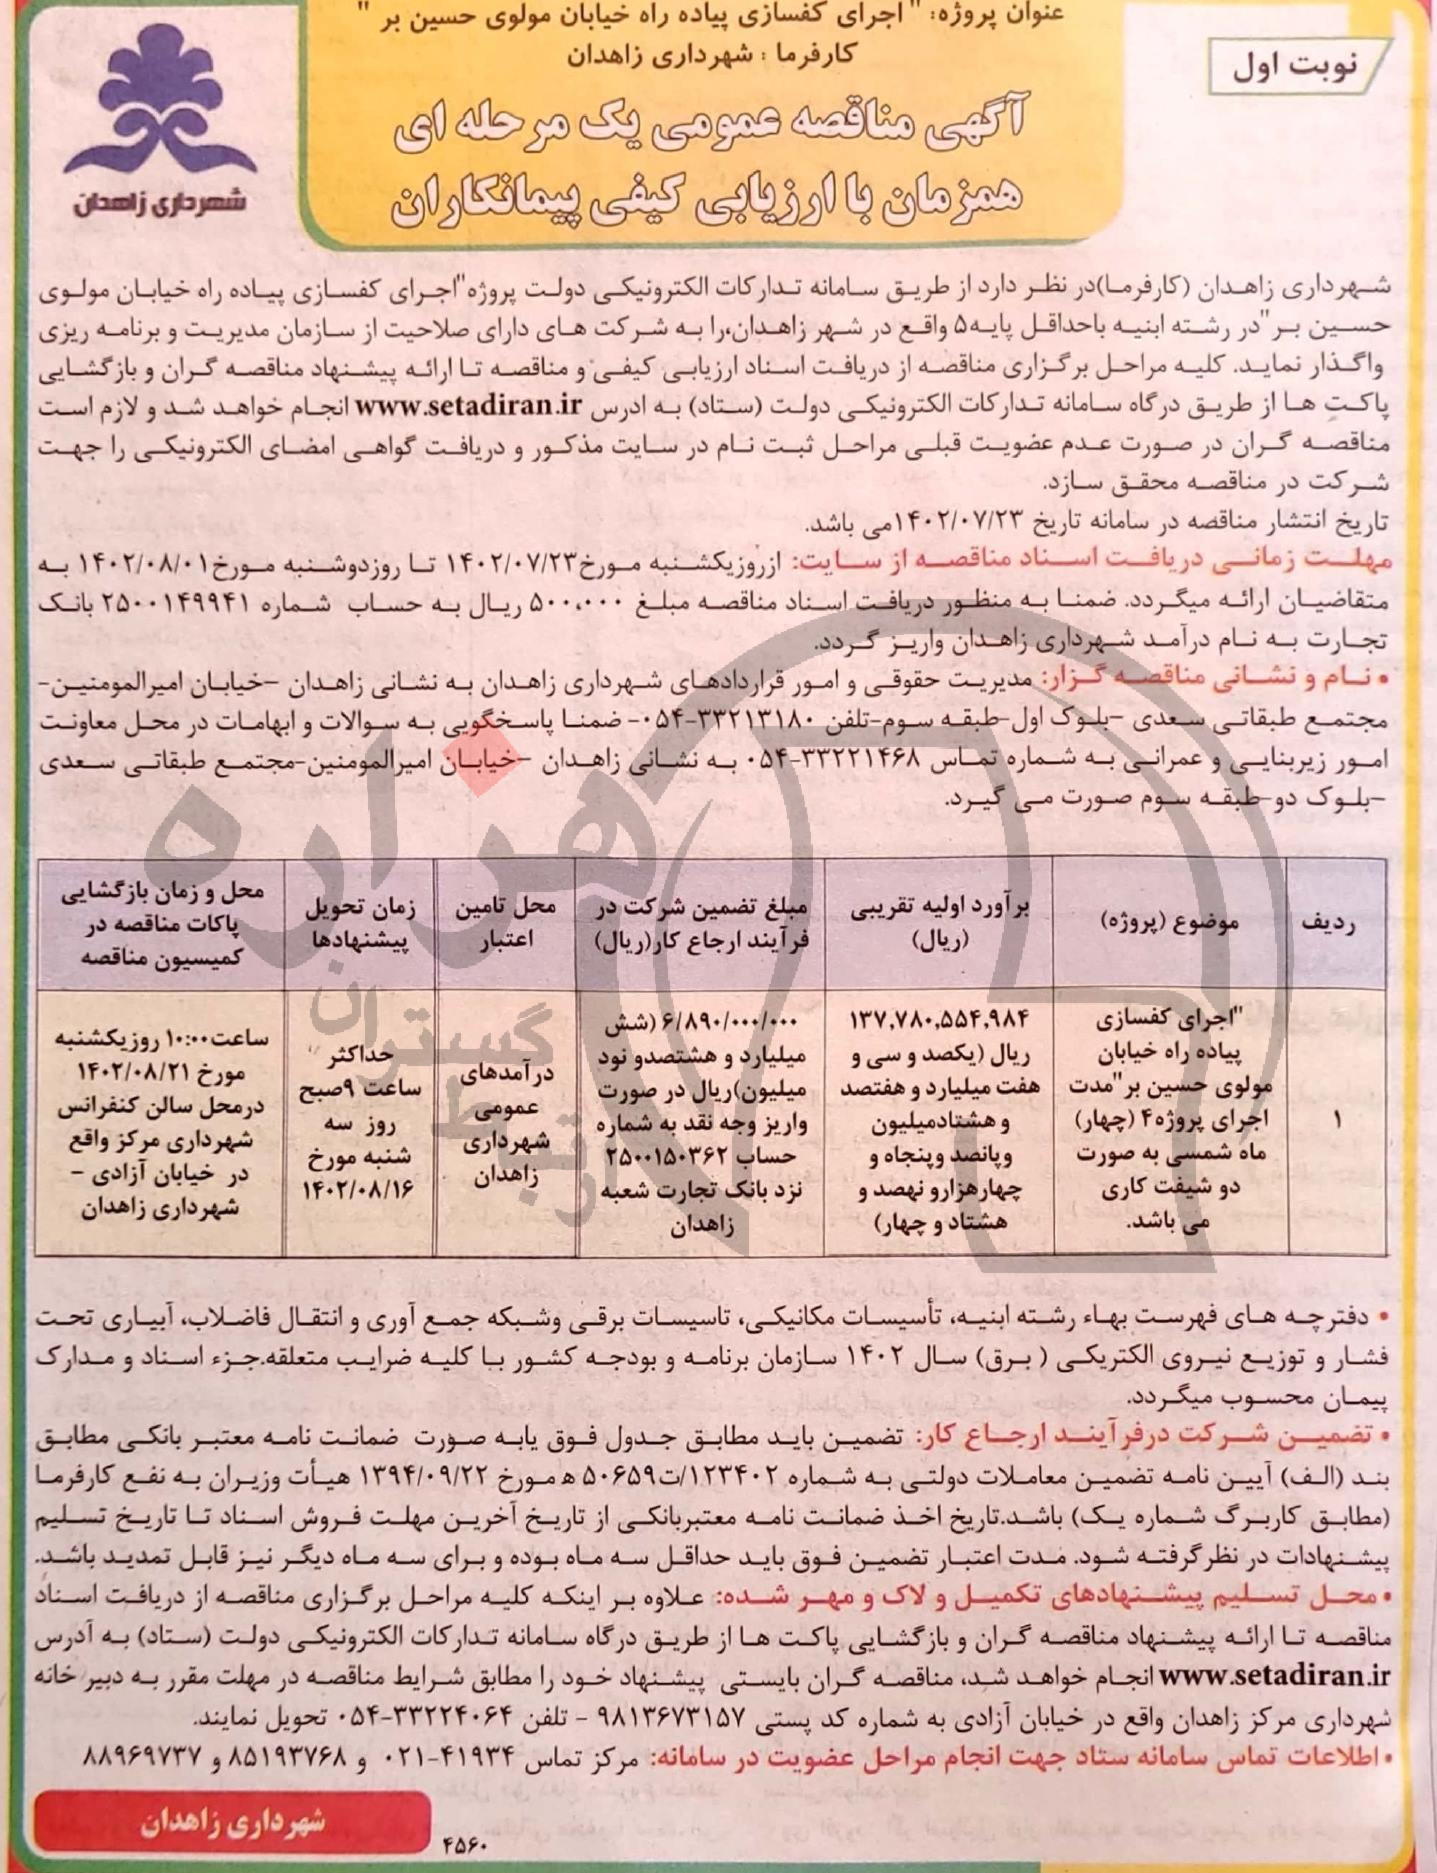 عنوان پروژه: " اجرای کفسازی پیاده راه خیابان مولوی حسین بر "
کارفرما : شهرداری زاهدان
نوبت اول
آگهی مناقصه عمومی یک مرحله ای
همزمان با ارزیابی کیفی پیمانکاران
شهرداری زاهدان
شهرداری زاهدان (کارفرما)در نظر دارد از طریق سامانه تدارکات الکترونیکی دولت پروژه"اجرای کفسازی پیاده راه خیابان مولوی
حسین بر"در رشته ابنیه باحداقل پایه۵ واقع در شهر زاهدان،را به شرکت های دارای صلاحیت از سازمان مدیریت و برنامه ریزی
واگذار نماید. کلیه مراحل برگزاری مناقصه از دریافت اسناد ارزیابی کیفی و مناقصه تا ارائه پیشنهاد مناقصه گران و بازگشایی
پاکت ها از طریق درگاه سامانه تدارکات الکترونیکی دولت (ستاد) به ادرس www.setadiran.ir انجام خواهد شد و لازم است
مناقصه گران در صورت عدم عضویت قبلی مراحل ثبت نام در سایت مذکور و دریافت گواهی امضای الکترونیکی را جهت
شرکت در مناقصه محقق سازد.
تاریخ انتشار مناقصه در سامانه تاریخ ۱۴۰۲/۰۷/۲۳می باشد.
مهلت زمانی دریافت اسناد مناقصه از سایت: ازروزیکشنبه مورخ۱۴۰۲/۰۷/۲۳ تا روزدوشنبه مورخ۱۴۰۲/۰۸/۰۱ به
متقاضیان ارائه میگردد. ضمنا به منظور دریافت اسناد مناقصه مبلغ ۵۰۰,۰۰۰ ریال به حساب شماره ۲۵۰۰۱۴۹۹۴۱ بانک
تجارت به نام درآمد شهرداری زاهدان واریز گردد.
• نام و نشانی مناقصه گزار: مدیریت حقوقی و امور قراردادهای شهرداری زاهدان به نشانی زاهدان –خیابان امیرالمومنین-
مجتمع طبقاتی سعدی –بلوک اول-طبقه سوم-تلفن ۳۳۲۱۳۱۸۰-۰۵۴- ضمنا پاسخگویی به سوالات و ابهامات در محل معاونت
امور زیربنایی و عمرانی به شماره تماس ۳۳۲۲۱۴۶۸-۰۵۴ به نشانی زاهدان –خیابان امیرالمومنین-مجتمع طبقاتی سعدی
–بلوک دو-طبقه سوم صورت می گیرد.
ردیف
موضوع (پروژه)
برآورد اولیه تقریبی
(ریال)
مبلغ تضمین شرکت در
فرآیند ارجاع کار(ریال)
محل تامین
اعتبار
زمان تحویل
پیشنهادها
محل و زمان بازگشایی
پاکات مناقصه در
کمیسیون مناقصه
۱
"اجرای کفسازی
پیاده راه خیابان
مولوی حسین بر"مدت
اجرای پروژه۴ (چهار)
ماه شمسی به صورت
دو شیفت کاری
می باشد.
۱۳۷,۷۸۰,۵۵۴,۹۸۴
ریال (یکصد و سی و
هفت میلیارد و هفتصد
و هشتادمیلیون
وپانصد وپنجاه و
چهارهزارو نهصد و
هشتاد و چهار)
۶/۸۹۰/۰۰۰/۰۰۰ (شش
میلیارد و هشتصدو نود
میلیون)ریال در صورت
واریز وجه نقد به شماره
حساب ۲۵۰۰۱۵۰۳۶۲
نزد بانک تجارت شعبه
زاهدان
درآمدهای
عمومی
شهرداری
زاهدان
حداکثر
ساعت ۹صبح
روز سه
شنبه مورخ
۱۴۰۲/۰۸/۱۶
ساعت۱۰:۰۰ روزیکشنبه
مورخ ۱۴۰۲/۰۸/۲۱
درمحل سالن کنفرانس
شهرداری مرکز واقع
در خیابان آزادی –
شهرداری زاهدان
• دفترچه های فهرست بهاء رشته ابنیه، تأسیسات مکانیکی، تاسیسات برقی وشبکه جمع آوری و انتقال فاضلاب، آبیاری تحت
فشار و توزیع نیروی الکتریکی ( برق) سال ۱۴۰۲ سازمان برنامه و بودجه کشور با کلیه ضرایب متعلقه.جزء اسناد و مدارک
پیمان محسوب میگردد.
• تضمین شرکت درفرآیند ارجاع کار: تضمین باید مطابق جدول فوق یابه صورت ضمانت نامه معتبر بانکی مطابق
بند (الف) آیین نامه تضمین معاملات دولتی به شماره ۱۲۳۴۰۲/ت۵۰۶۵۹ ه مورخ ۱۳۹۴/۰۹/۲۲ هیأت وزیران به نفع کارفرما
(مطابق کاربرگ شماره یک) باشد.تاریخ اخذ ضمانت نامه معتبربانکی از تاریخ آخرین مهلت فروش اسناد تا تاریخ تسلیم
پیشنهادات در نظرگرفته شود. مدت اعتبار تضمین فوق باید حداقل سه ماه بوده و برای سه ماه دیگر نیز قابل تمدید باشد.
• محل تسلیم پیشنهادهای تکمیل و لاک و مهر شده: علاوه بر اینکه کلیه مراحل برگزاری مناقصه از دریافت اسناد
مناقصه تا ارائه پیشنهاد مناقصه گران و بازگشایی پاکت ها از طریق درگاه سامانه تدارکات الکترونیکی دولت (ستاد) به آدرس
www.setadiran.ir انجام خواهد شد، مناقصه گران بایستی پیشنهاد خود را مطابق شرایط مناقصه در مهلت مقرر به دبیر خانه
شهرداری مرکز زاهدان واقع در خیابان آزادی به شماره کد پستی ۹۸۱۳۶۷۳۱۵۷ – تلفن ۳۳۲۲۴۰۶۴-۰۵۴ تحویل نمایند.
• اطلاعات تماس سامانه ستاد جهت انجام مراحل عضویت در سامانه: مرکز تماس ۴۱۹۳۴-۰۲۱ و ۸۵۱۹۳۷۶۸ و ۸۸۹۶۹۷۳۷
شهرداری زاهدان
۴۵۶۰
هزاره
گستران